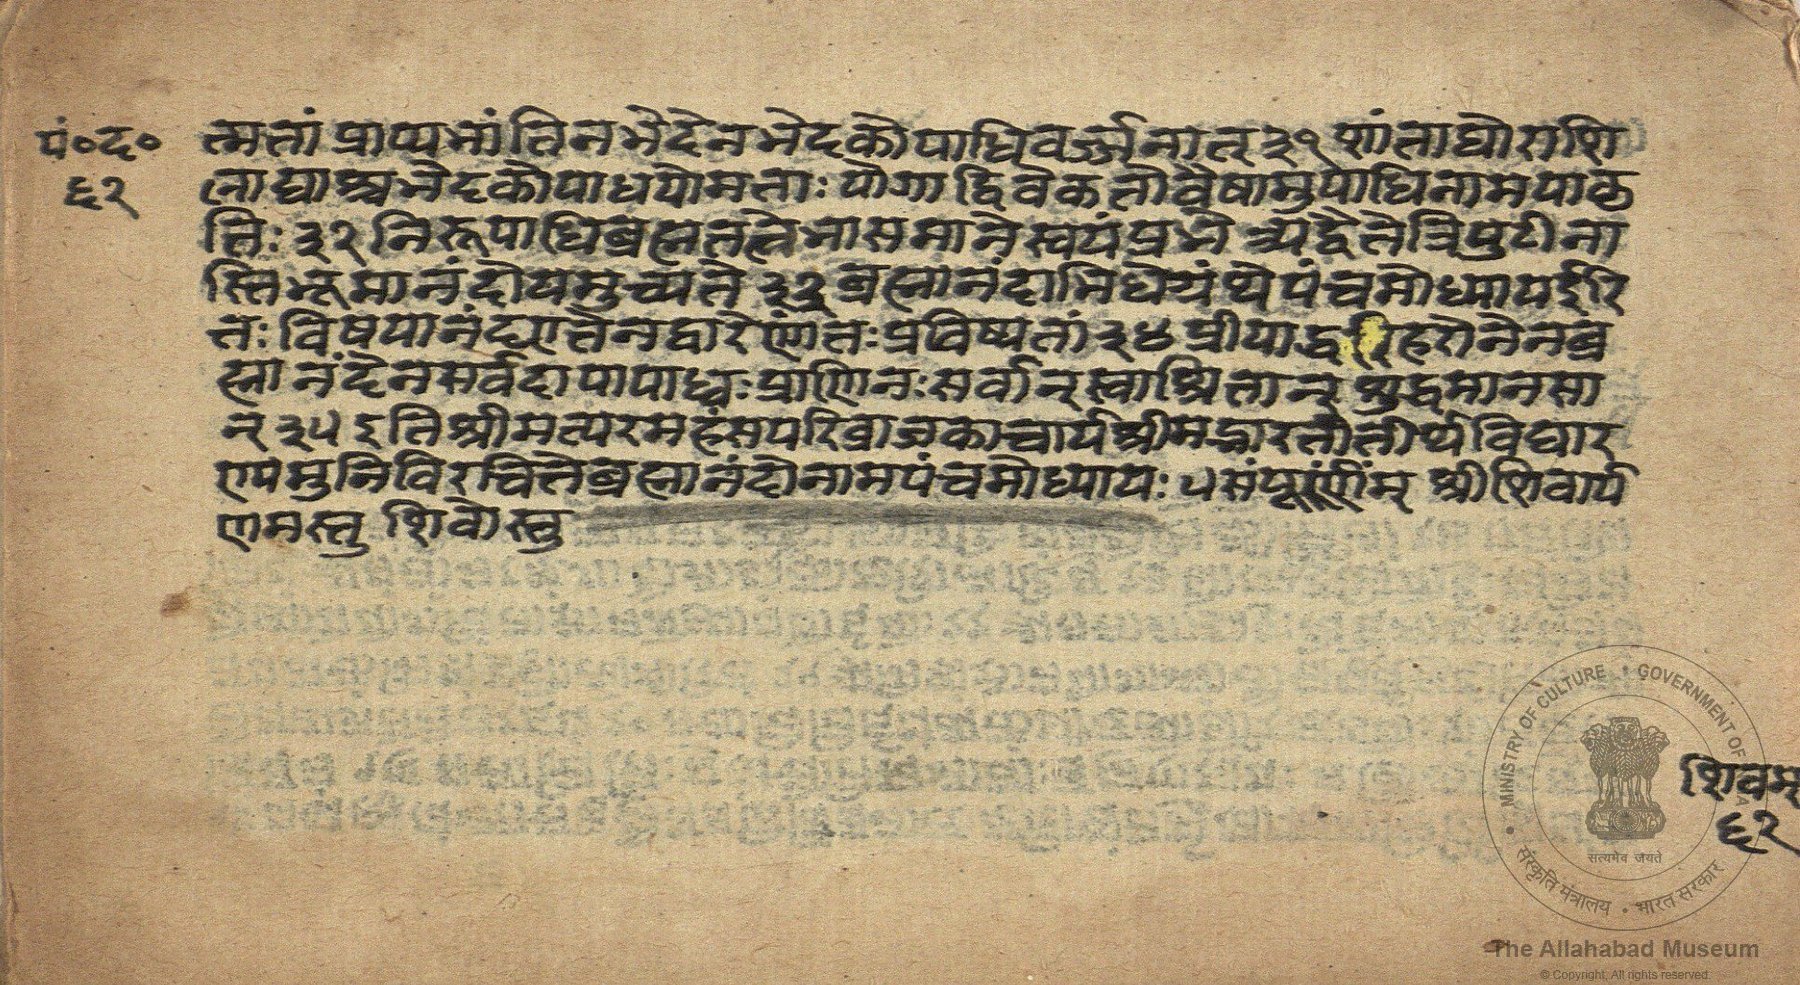 पं०द०
६२
त्मतां प्राप्य भांति न भेदेन भेदकोपाधिवर्ज्जनात् ३१ शांताघोराशि
लोद्याश्च भेदकोपाधयोमताः योगाद्विवेकतोवैषामुपाधिनामपाकृ
तिः ३२ निरूपाधिब्रह्मतत्त्वे भासमाने स्वयंप्रभे अद्वैते त्रिपुटी ना
स्ति भूमानंदोयमुच्यते ३३ ब्रह्मानंदाभिधेयंथे पंचमोध्यायईरि
तः विषयानंदएतेनद्वारेणांतः प्रविष्यतां ३४ प्रीयाद्धरिर्हरोनेनब्र
ह्मानंदेनसर्वदा पापाध्वः प्राणिनः सर्वान् स्वाश्रितान् शुद्धमानसा
न् ३५ इतिश्रीमत्परमहंसपरिव्राजकाचार्यश्रीमद्भारतीतीर्थविद्यार
ण्यमुनिविरचितेब्रह्मानंदोनामपंचमोध्यायः ५ संपूर्णम् श्रीशिवार्प
णमस्तु शिवोस्तु
शिवम्
६२
MINISTRY OF CULTURE • GOVERNMENT OF
सत्यमेव जयते
संस्कृति मंत्रालय • भारत सरकार
The Allahabad Museum
© Copyright, All rights reserved.